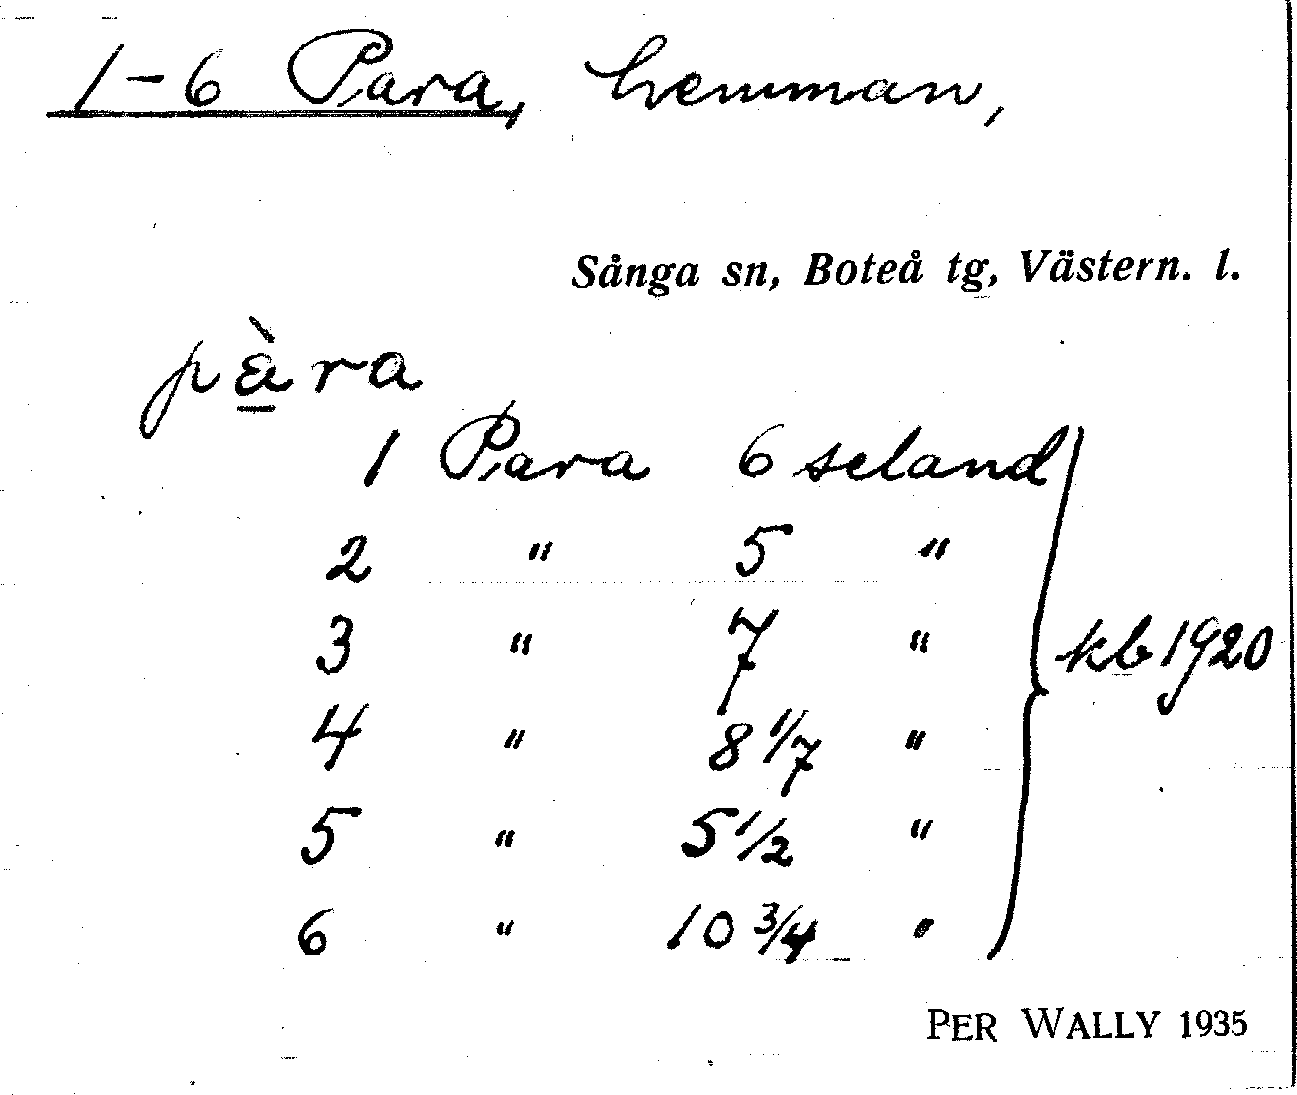 1-6 Para, hemman,
Sånga sn, Boteå tg, Västern. l.
pàra
1 Para 6 seland
2 " 5 "
3 " 7 "
4 " 8 1/7 "
5 " 5 1/2 "
6 " 10 3/4 "
kb 1920
PER WALLY 1935